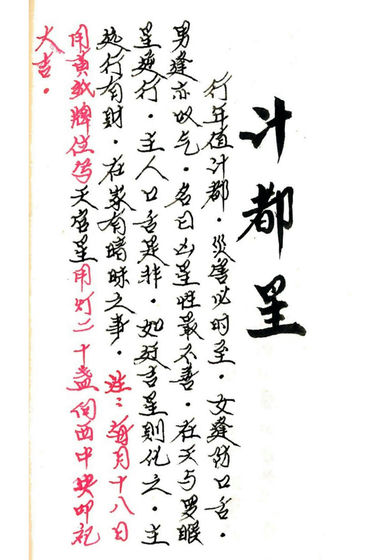 计都星
行年值计都。災害必时至。女逢防口舌。
男逢亦呕气。名曰凶星性最不善。在天与罗睺
星逆行。主人口舌是非。如致吉星则化之。主
远行有财。在家有暗昧之事。注：每月十八日
用黄纸牌位写天官星用灯二十盏向西中央叩祀
大吉。